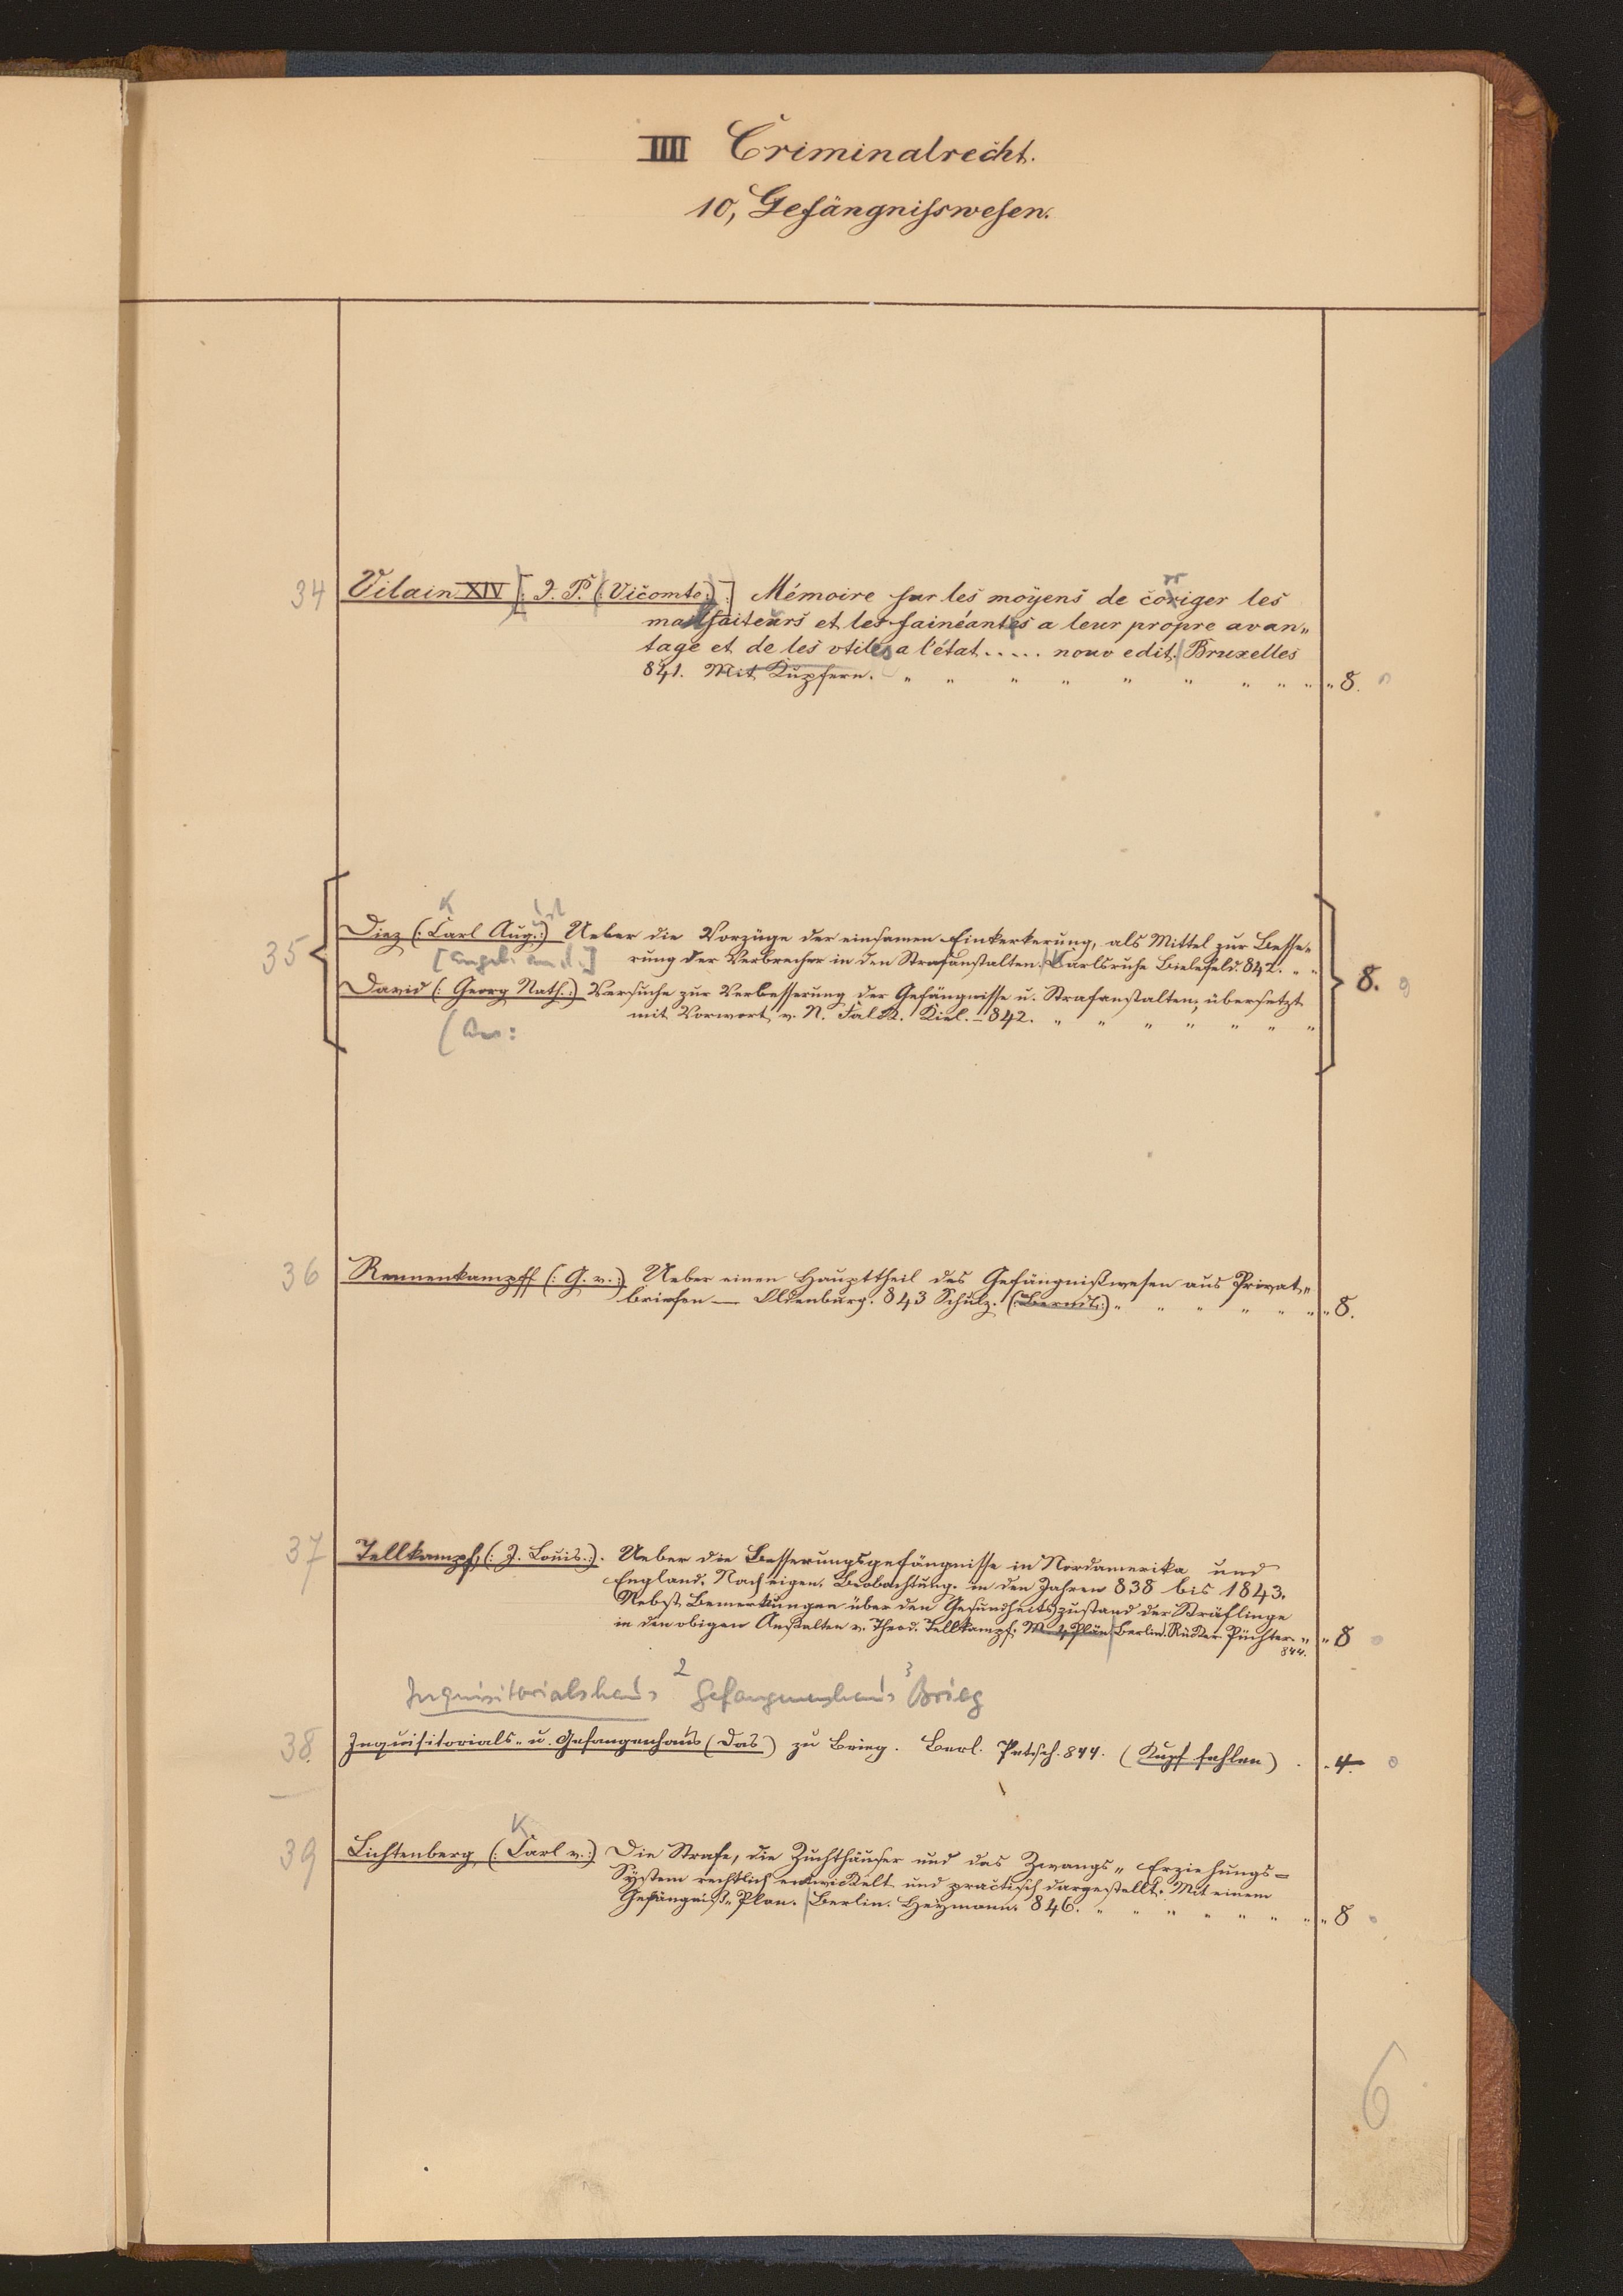 IIII Criminalrecht.
10, Gefängnisswesen.
34 Vilain XIV [: J. P. (: Vicomte :) :] Mémoire sur les moyens de coriger les
malfaiteurs et les fainéants a leur propre avan„
tage et de les utiles a l'état..... nouv edit. Bruxelles
841. Mit Kupfern. „ „ „ „ „ „ „ „ „ „ 8.
K
35 Diez (: Carl Aug. :) Ueber die Vorzüge der einsamen Einkerkerung, als Mittel zur Besse„
rung der Verbrecher in den Strafanstalten. Carlsruhe Bielefeld. 842. „ „
David (: Georg Nath. :) Versuche zur Verbesserung der Gefängnisse u. Strafanstalten, übersetzt
mit Vorwort v. N. Falck. Kiel. – 842. „ „ „ „ „ „ „
8.
36 Rennenkampff (: G. v. :) Ueber einen Haupttheil des Gefängnißwesen aus Privat„
briefen — Oldenburg. 843 Schulz. (: Berndt :) „ „ „ „ „ „ „ 8.
37 Tellkampf, (: J. Louis. :). Ueber die Besserungsgefängnisse in Nordamerika und
England. Nach eigen. Beobachtung. in den Jahren 838 bis 1843.
Nebst Bemerkungen über den Gesundheitszustand der Sträflinge
in den obigen Anstalten v. Theod. Tellkampf. M. 4 Plän Berlin. Rücker Püchter. „ „ 8
844.
Inquisitorialshaus 2 Gefangenenhaus 3 Brieg
38. Inquisitorials- u. Gefangenhaus (das) zu Brieg. Berl. Petsch. 844. (Kupf fehlen) . . 4.
K
39 Lichtenberg (: Carl v. :) Die Strafe, die Zuchthäuser und das Zwangs„ Erziehungs=
System rechtlich entwickelt und practisch dargestellt. Mit einem
Gefängniß„ Plan. Berlin. Heymann. 846. „ „ „ „ „ „ „ „ 8
6